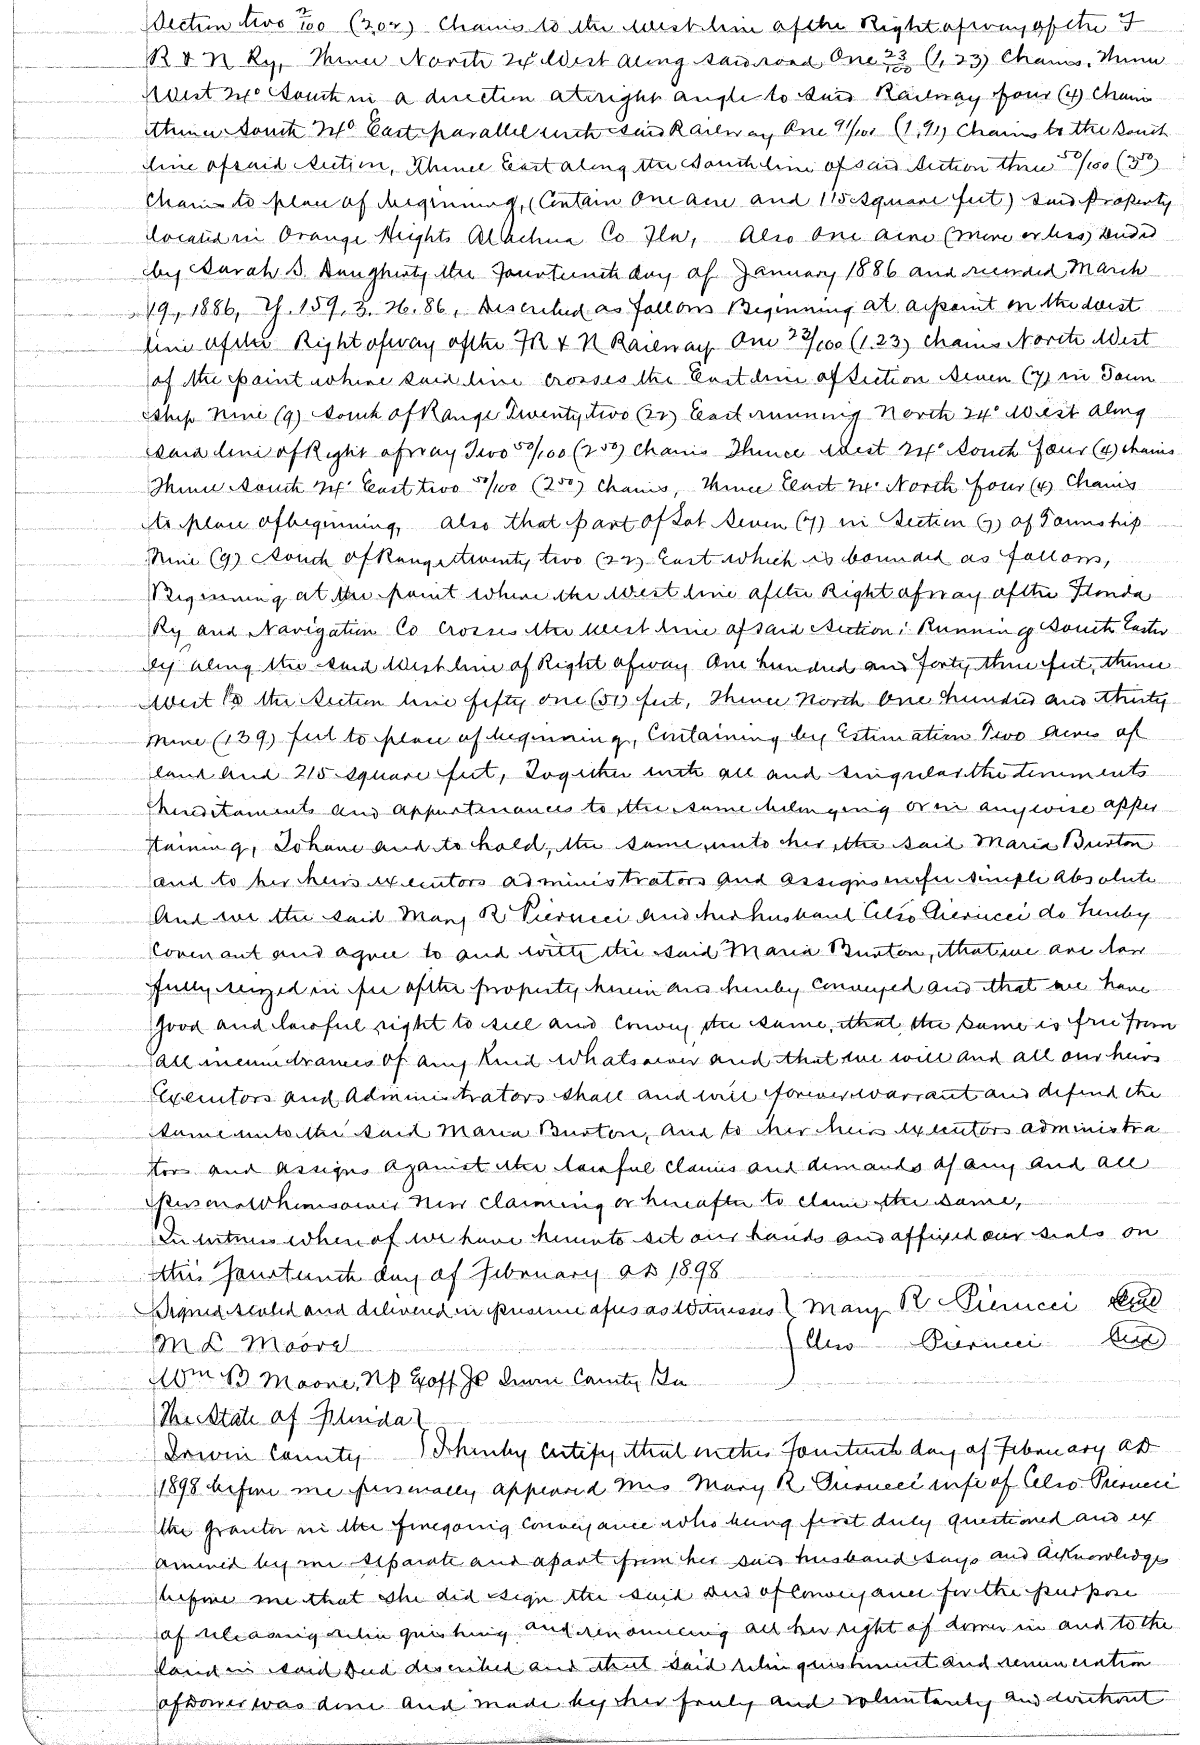 Section two 2/100 (202) Chains to the West line of the Right of way of the F
R & N Ry, Thence North 24° West along said road One 23/100 (1,23) Chains, Thence
West 24° South in a direction at right angle to said Railway four (4) Chains
thence South 24° East parallel with said Railway One 91/100 (1,91) Chains to the South
line of said Section, Thence East along the South line of said Section three 50/100 (3 50)
Chains to place of beginning, (Contain One acre and 115 square feet) said Property
located in Orange Heights Alachua Co Fla, Also One acre (more or less) Deeded
by Sarah S. Daugherty the fourteenth day of January 1886 and recorded March
19, 1886, 159. 3. 26. 86, Described as follows Beginning at a point on the West
line of the Right of way of the FR & N Railway One 23/100 (1.23) Chains North West
of the point where said line crosses the East line of Section Seven (7) in Town
ship Nine (9) South of Range Twenty two (22) East running North 24° West along
said line of Right of way Two 50/100 (2 50) Chains Thence West 24° South four (4) chains
Thence South 24° East two 50/100 (2 50) Chains, Thence East 24° North four (4) Chains
to place of beginning, Also that part of Lot Seven (7) in Section (7) of Township
Nine (9) South of Range twenty two (22) East which is bounded as follows,
Beginning at the point where the West line of the Right of way of the Florida
Ry and Navigation Co crosses the West line of said Section; Running South Easter
ly along the said West line of Right of way One hundred and forty three feet, thence
West to the Section line fifty one (51) feet, Thence North One hundred and thirty
nine (139) feet to place of beginning, Containing by Estimation Two Acres of
land and 215 square feet, Together with all and singular the tenements
hereditaments and appurtenances to the same belonging or in anywise apper
taining, To have and to hold, the same unto her the said Maria Burton
and to her heirs executors administrators and assigns in fee simple absolute
And we the said Mary R Pierucci and her husband Celso Pierucci do hereby
Covenant and agree to and with the said Maria Burton, that we are law
fully seized in fee of the property herein and hereby Conveyed and that we have
good and lawful right to sell and Convey the same, that the same is free from
all incumbrances of any Kind whatsoever and that we will and all our heirs
Executors and Administrators shall and will forever warrant and defend the
same unto the said Maria Burton, and to her heirs executors administra
tors and assigns against the lawful claims and demands of any and all
persons Whomsoever now claiming or hereafter to claim the same,
In witness whereof we have hereunto set our hands and affixed our seals on
this fourteenth day of February AD 1898
Signed sealed and delivered in presence of us as Witnesses } Mary R Pierucci Seal
M L Moore } Celso Pierucci Seal
Wm B Moore, NP & off JP Irwin County Ga
The State of Florida }
Irwin County } I hereby Certify that on this fourteenth day of February AD
1898 before me personally appeared Mrs Mary R Pierucci wife of Celso Pierucci
the grantor in the foregoing Conveyance who being first duly questioned and ex
amined by me separate and apart from her said husband says and Acknowledges
before me that she did sign the said Deed of Conveyance for the purpose
of releasing relinquishing and renouncing all her right of dower in and to the
land in said Deed described and that said relinquishment and renunciation
of Dower was done and made by her freely and voluntarily and without